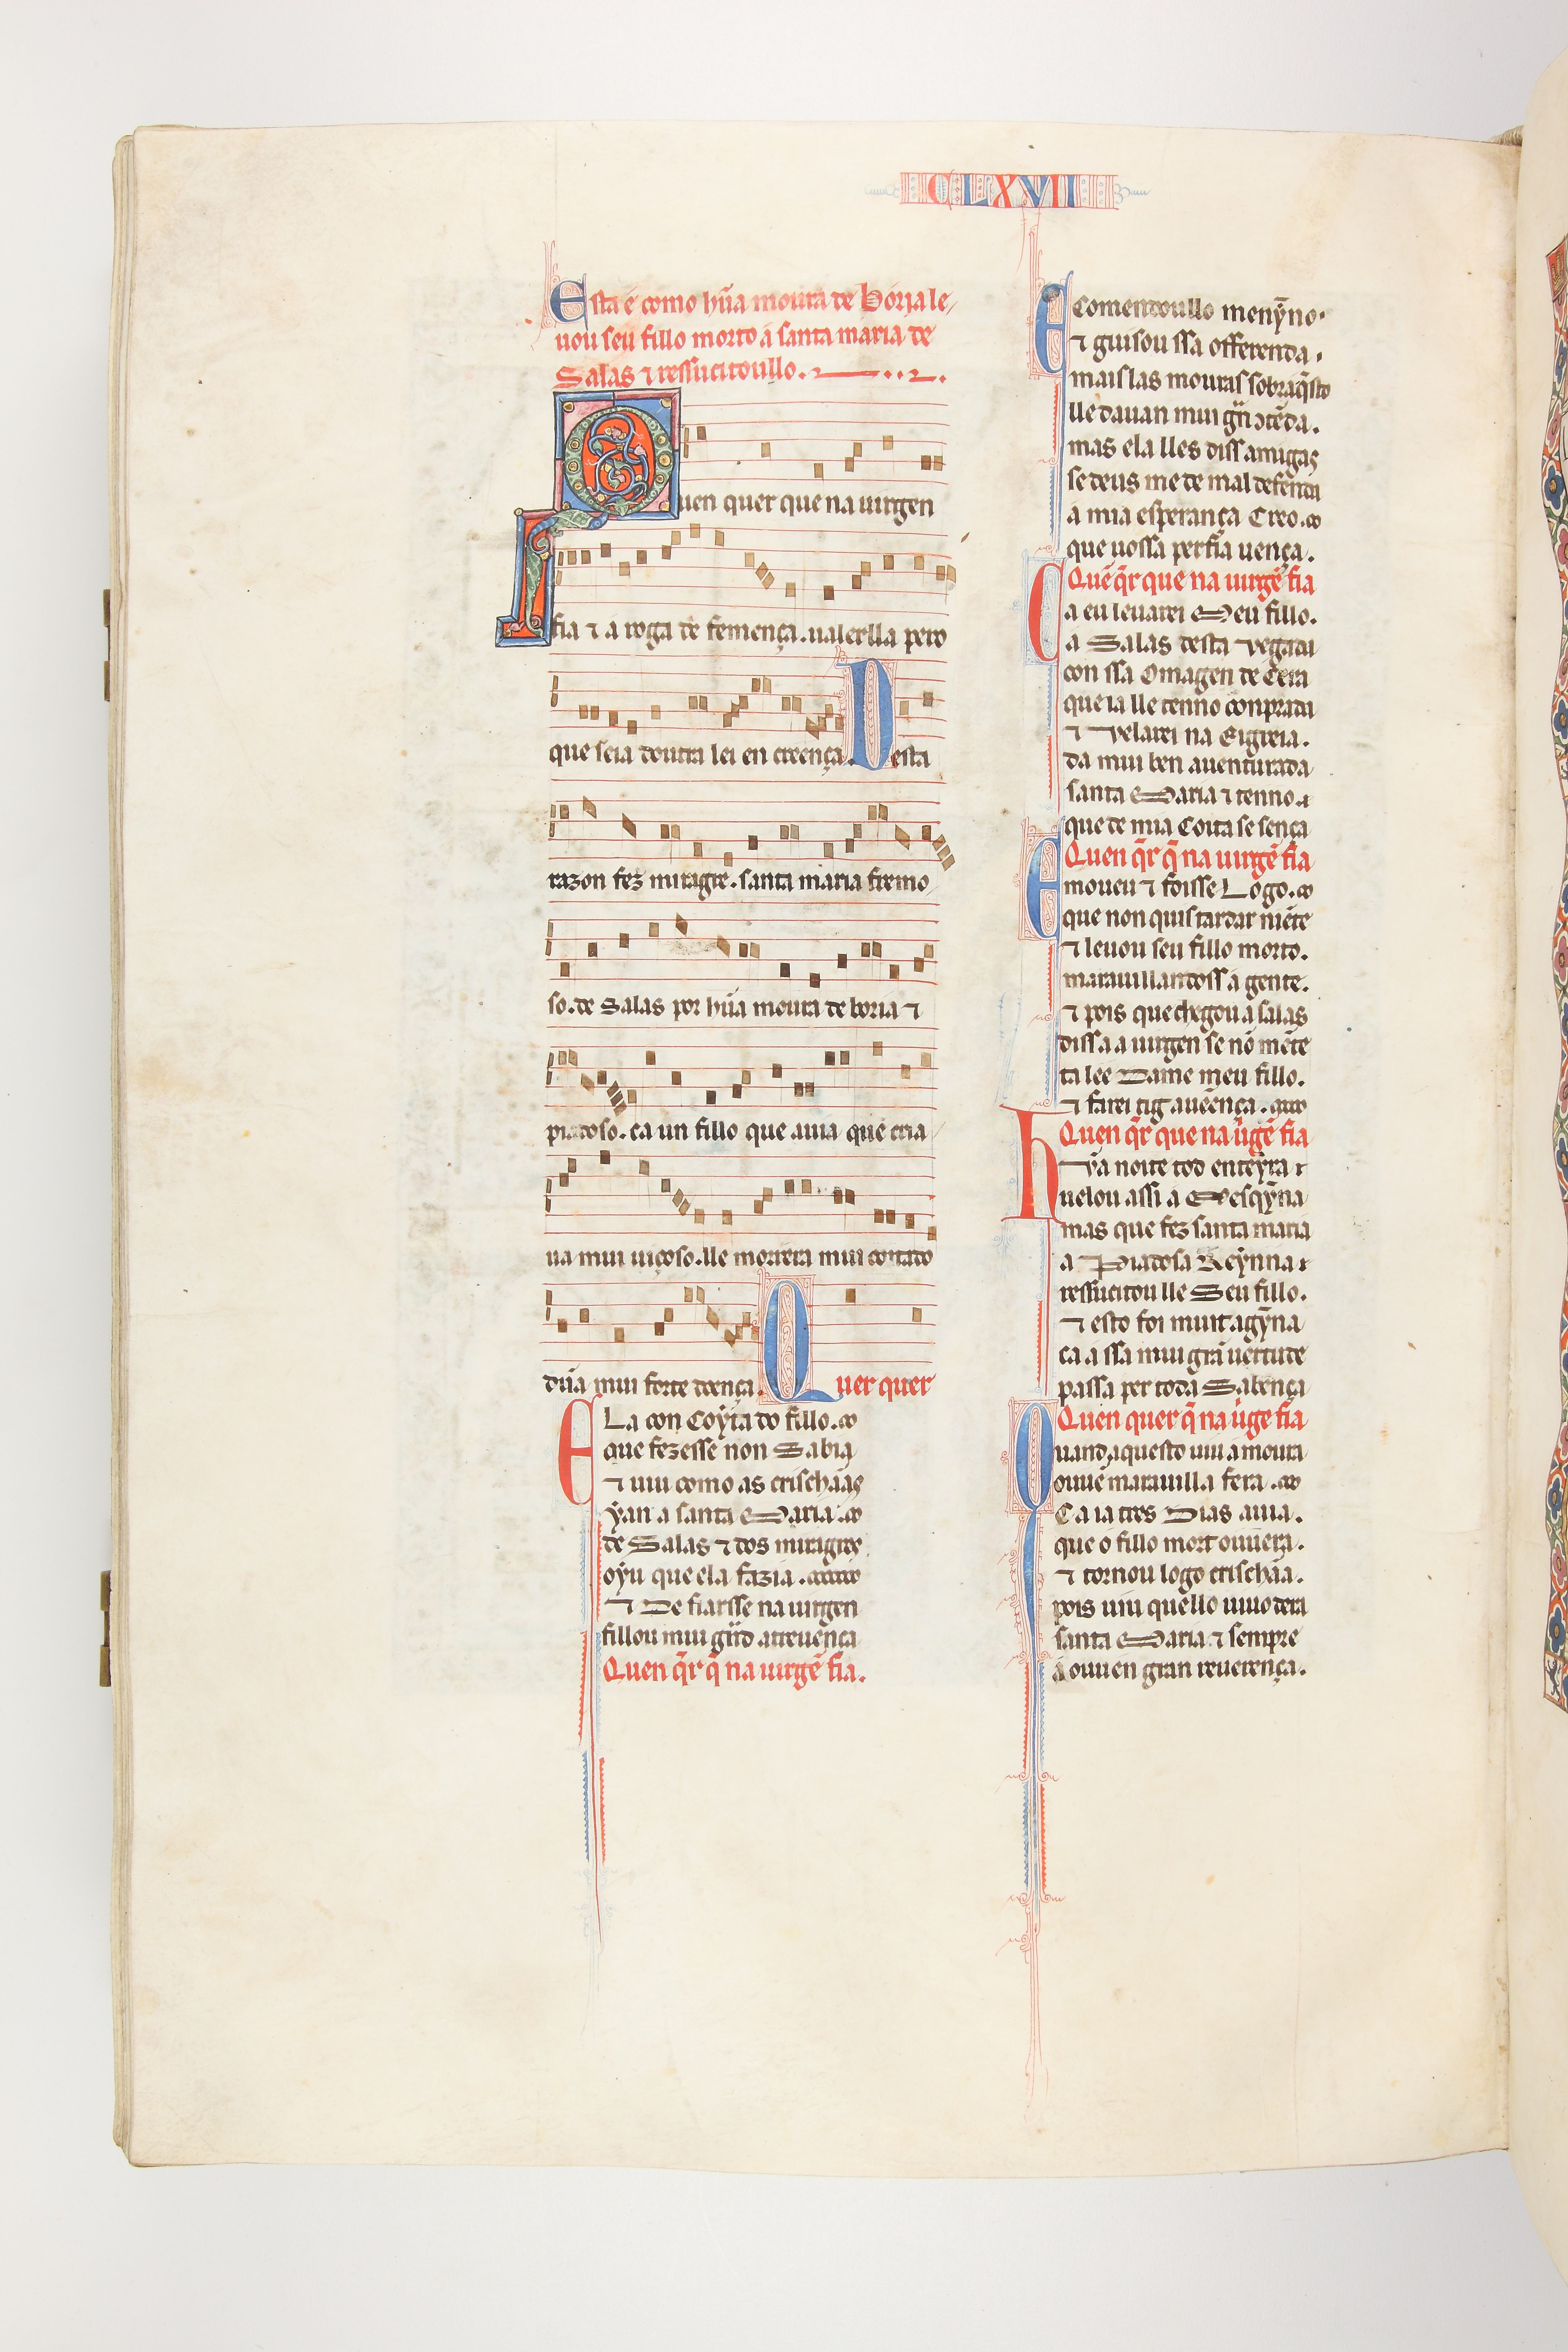 CLXVII
Esta é como hũa moura de Borja le
uou seu fillo morto a santa maria de
Salas ⁊ ressucitoullo.
Quen quer que na uirgen
fia ⁊ a roga de femença. ualerlla pero
que seia doutra lei en creença. Desta
razon fez miragre. santa maria fremo
so. de Salas por hũa moura de boria ⁊
piadoso. ca un fillo que auia que cria
ua mui uiçoso. lle morrera mui coitado
dũa mui forte doença. Quer quer
ELa con Coÿta do fillo.
que fezesse non Sabia
⁊ uiu como as crischãas
ÿan a santa Maria.
de Salas ⁊ dos miragres
oÿu que ela fazia.
⁊ De fiarsse na uirgen
fillou mui grãd atreuença
Quen q̃r q̃ na uirgẽ fia.
EComendoullo menỹno.
⁊ guisou ssa offerenda.
mais las mouras sobraq̃sto
lle dauan mui grã ↄtẽda.
mas ela lles diss amigas
se deus me de mal defenda
a mia esperança Creo.
que uossa perfia uença.
Quẽ q̃r que na uirgẽ fia
Ca eu leuarei Meu fillo.
a Salas desta vegada
con ssa Omagen de Cera
que ia lle tenno conprada
⁊ velarei na Eigreia.
da mui ben auenturada
santa Maria ⁊ tenno.
que de mia Coita se sença
Quen q̃r q̃ na uirgẽ fia
E moueu ⁊ foisse Logo.
que non quis tardar niẽte
⁊ leuou seu fillo morto.
marauillandoss a gente.
⁊ pois que chegou a salas
diss a a uirgen se nõ mẽte
ta lee Dame meu fillo.
⁊ farei tig auẽença.
Quen q̃r que na ũgẽ fia
hũa noite tod enteỹra
uelou assi a Mesqỹna
mas que fez santa maria
a Piadosa Reỹnna
ressucitou lle Seu fillo.
⁊ esto foi muit agỹna
ca a ssa mui grã uertude
passa per toda Sabença
Quen quer q̃ na ũgẽ fia
Quand aquesto uiu a moura
ouuẽ marauilla fera.
Ca ia tres Dias auia.
que o fillo mort ouuera.
⁊ tornou logo crischãa.
pois uiu que llo uiuo dera
santa Maria ⁊ sempre
a ouu en gran reuerença.